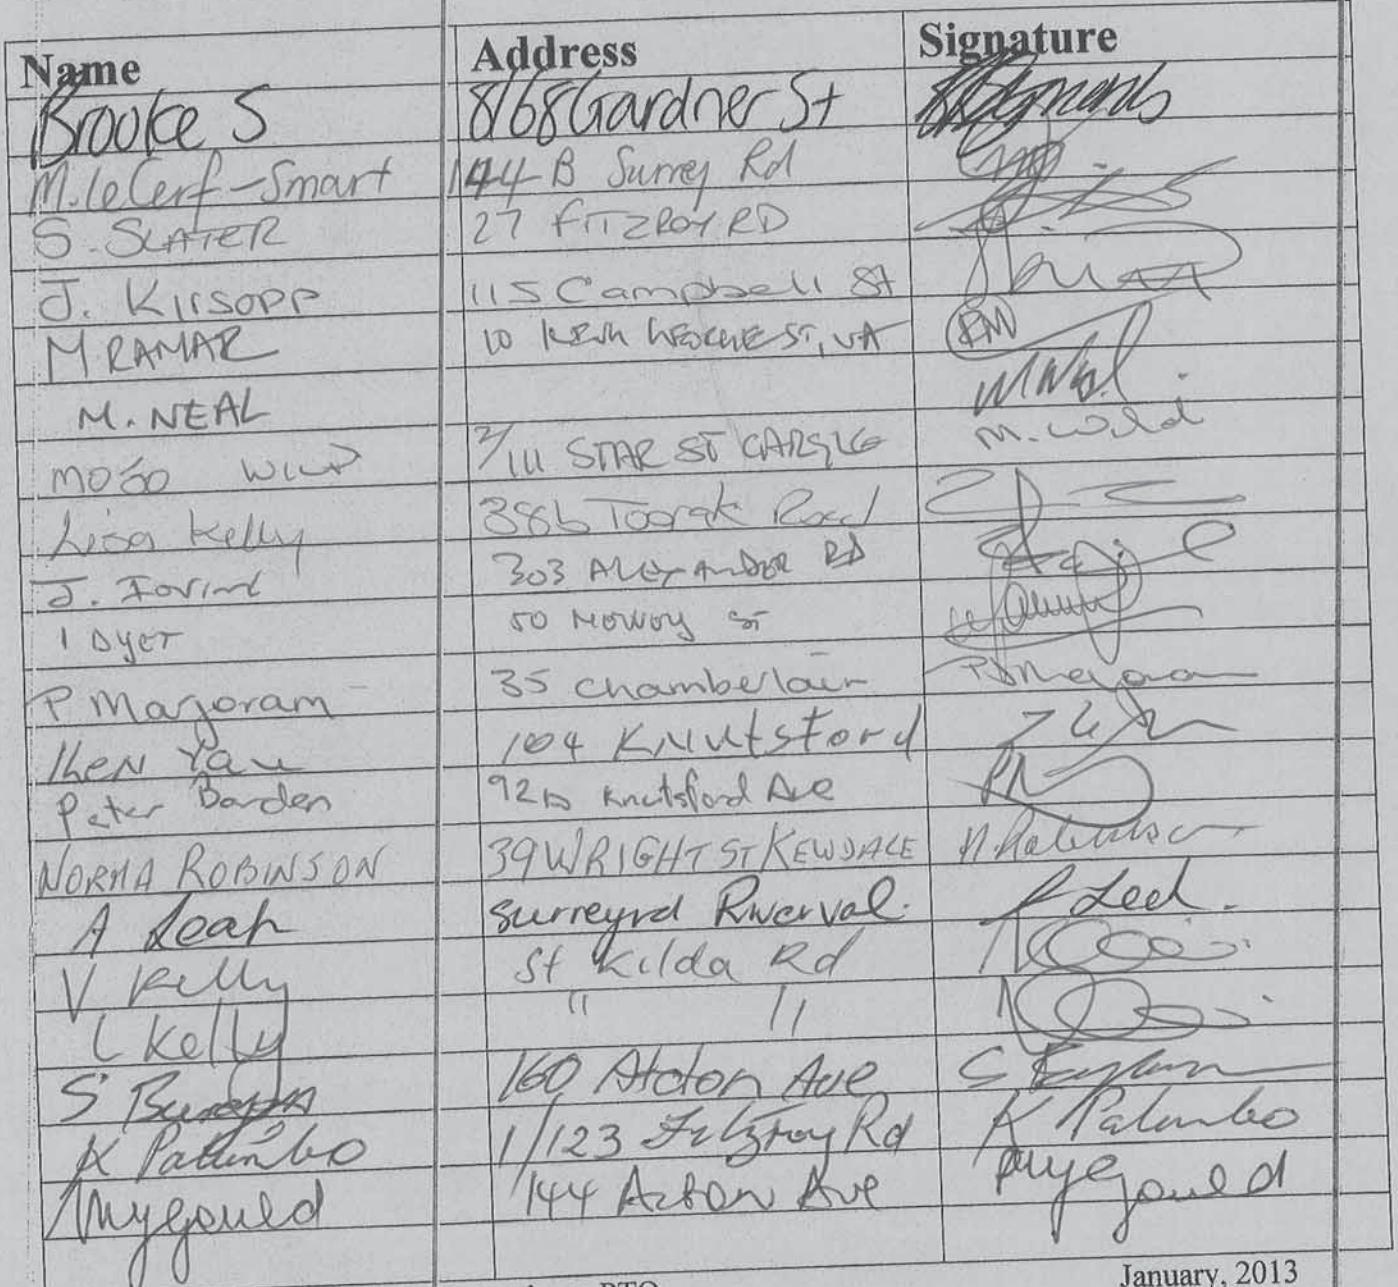 Name Address Signature
Brooke S 8/68 Gardner St
M. le Cerf-Smart 144 B Surrey Rd
S. SLATER 27 FITZROY RD
J. KIRSOPP 115 Campbell St
M RAMAR 10 ST, VA RM
M. NEAL M Neal.
MOJO WILD 2/111 STAR ST CARSLE M. Wild
Lisa Kelly 386 Toorak Road
J. 303 ALEXANDER RD
I DYET 50 ST
P Marjoram 35 Chamberlain P Marjoram
KEN Yau 104 KNUTSFORD
Peter Barden 92B Knutsford Ave
NORMA ROBINSON 39 WRIGHT ST KEWDALE N. Robinson
A Leah Surrey rd Riverval. A Leah.
V Kelly St Kilda Rd
L Kelly " "
S 160 Acton Ave S
K Palumbo 1/123 Fitzroy Rd K Palumbo
Mygould 144 Acton Ave Mygould
PTO January, 2013